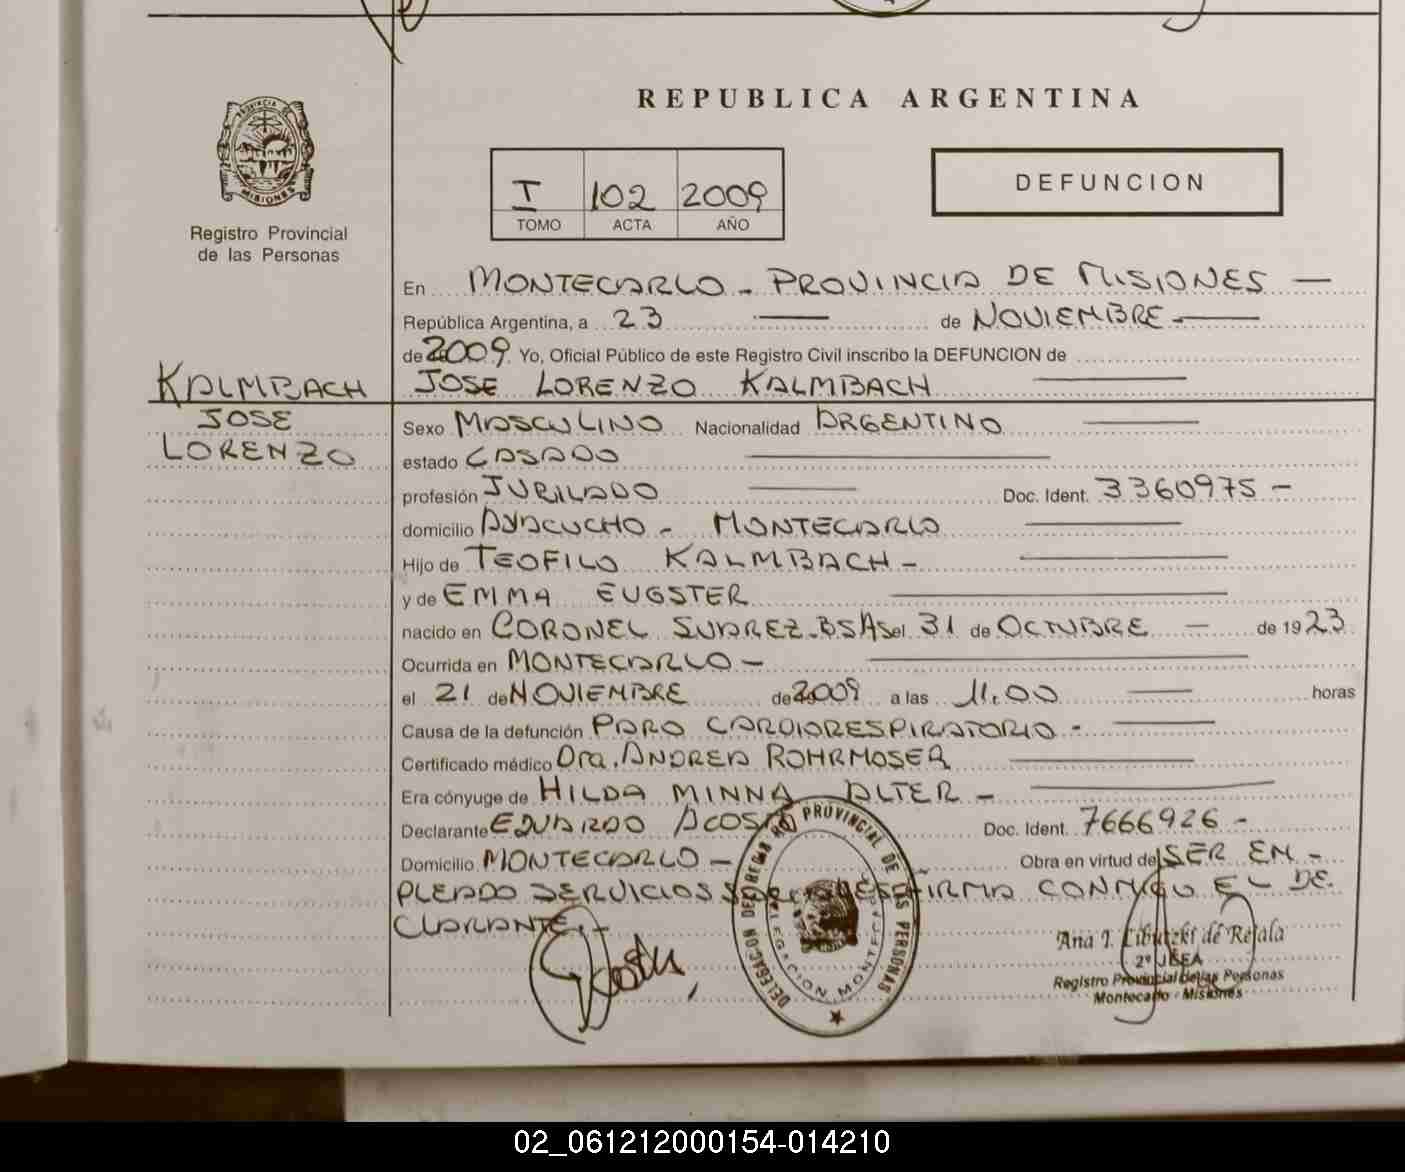 REPUBLICA ARGENTINA
PROVINCIA
MISIONES
Registro Provincial
de las Personas
I 102 2009
TOMO ACTA AÑO
DEFUNCION
En MONTECARLO - PROVINCIA DE MISIONES —
República Argentina, a 23 — de NOVIEMBRE —
de 2009. Yo, Oficial Público de este Registro Civil inscribo la DEFUNCION de
KALMBACH
JOSE
LORENZO
JOSE LORENZO KALMBACH —
Sexo MASCULINO Nacionalidad ARGENTINO —
estado CASADO —
profesión JUBILADO — Doc. Ident. 3360975 -
domicilio AYACUCHO - MONTECARLO —
Hijo de TEOFILO KALMBACH - —
y de EMMA EUGSTER —
nacido en CORONEL SUAREZ-BSAS el 31 de OCTUBRE — de 1923
Ocurrida en MONTECARLO - —
el 21 de NOVIEMBRE de 2009 a las 11.00 — horas
Causa de la defunción PARO CARDIORESPIRATORIO - —
Certificado médico Dra. ANDREA ROHRMOSER —
Era cónyuge de HILDA MINNA ALTER - —
Declarante EDUARDO ACOSTA Doc. Ident. 7666926 -
Domicilio MONTECARLO - Obra en virtud de SER EM -
PLEADO SERVICIOS SOCIALES FIRMA CONMIGO EL DE
CLARANTE. -
DELEGACION DEL REGISTRO PROVINCIAL DE LAS PERSONAS
DELEGACION MONTECARLO
Ana I. Libutzki de Rejala
2º JEFA
Registro Provincial de las Personas
Montecarlo - Misiones
02_061212000154-014210